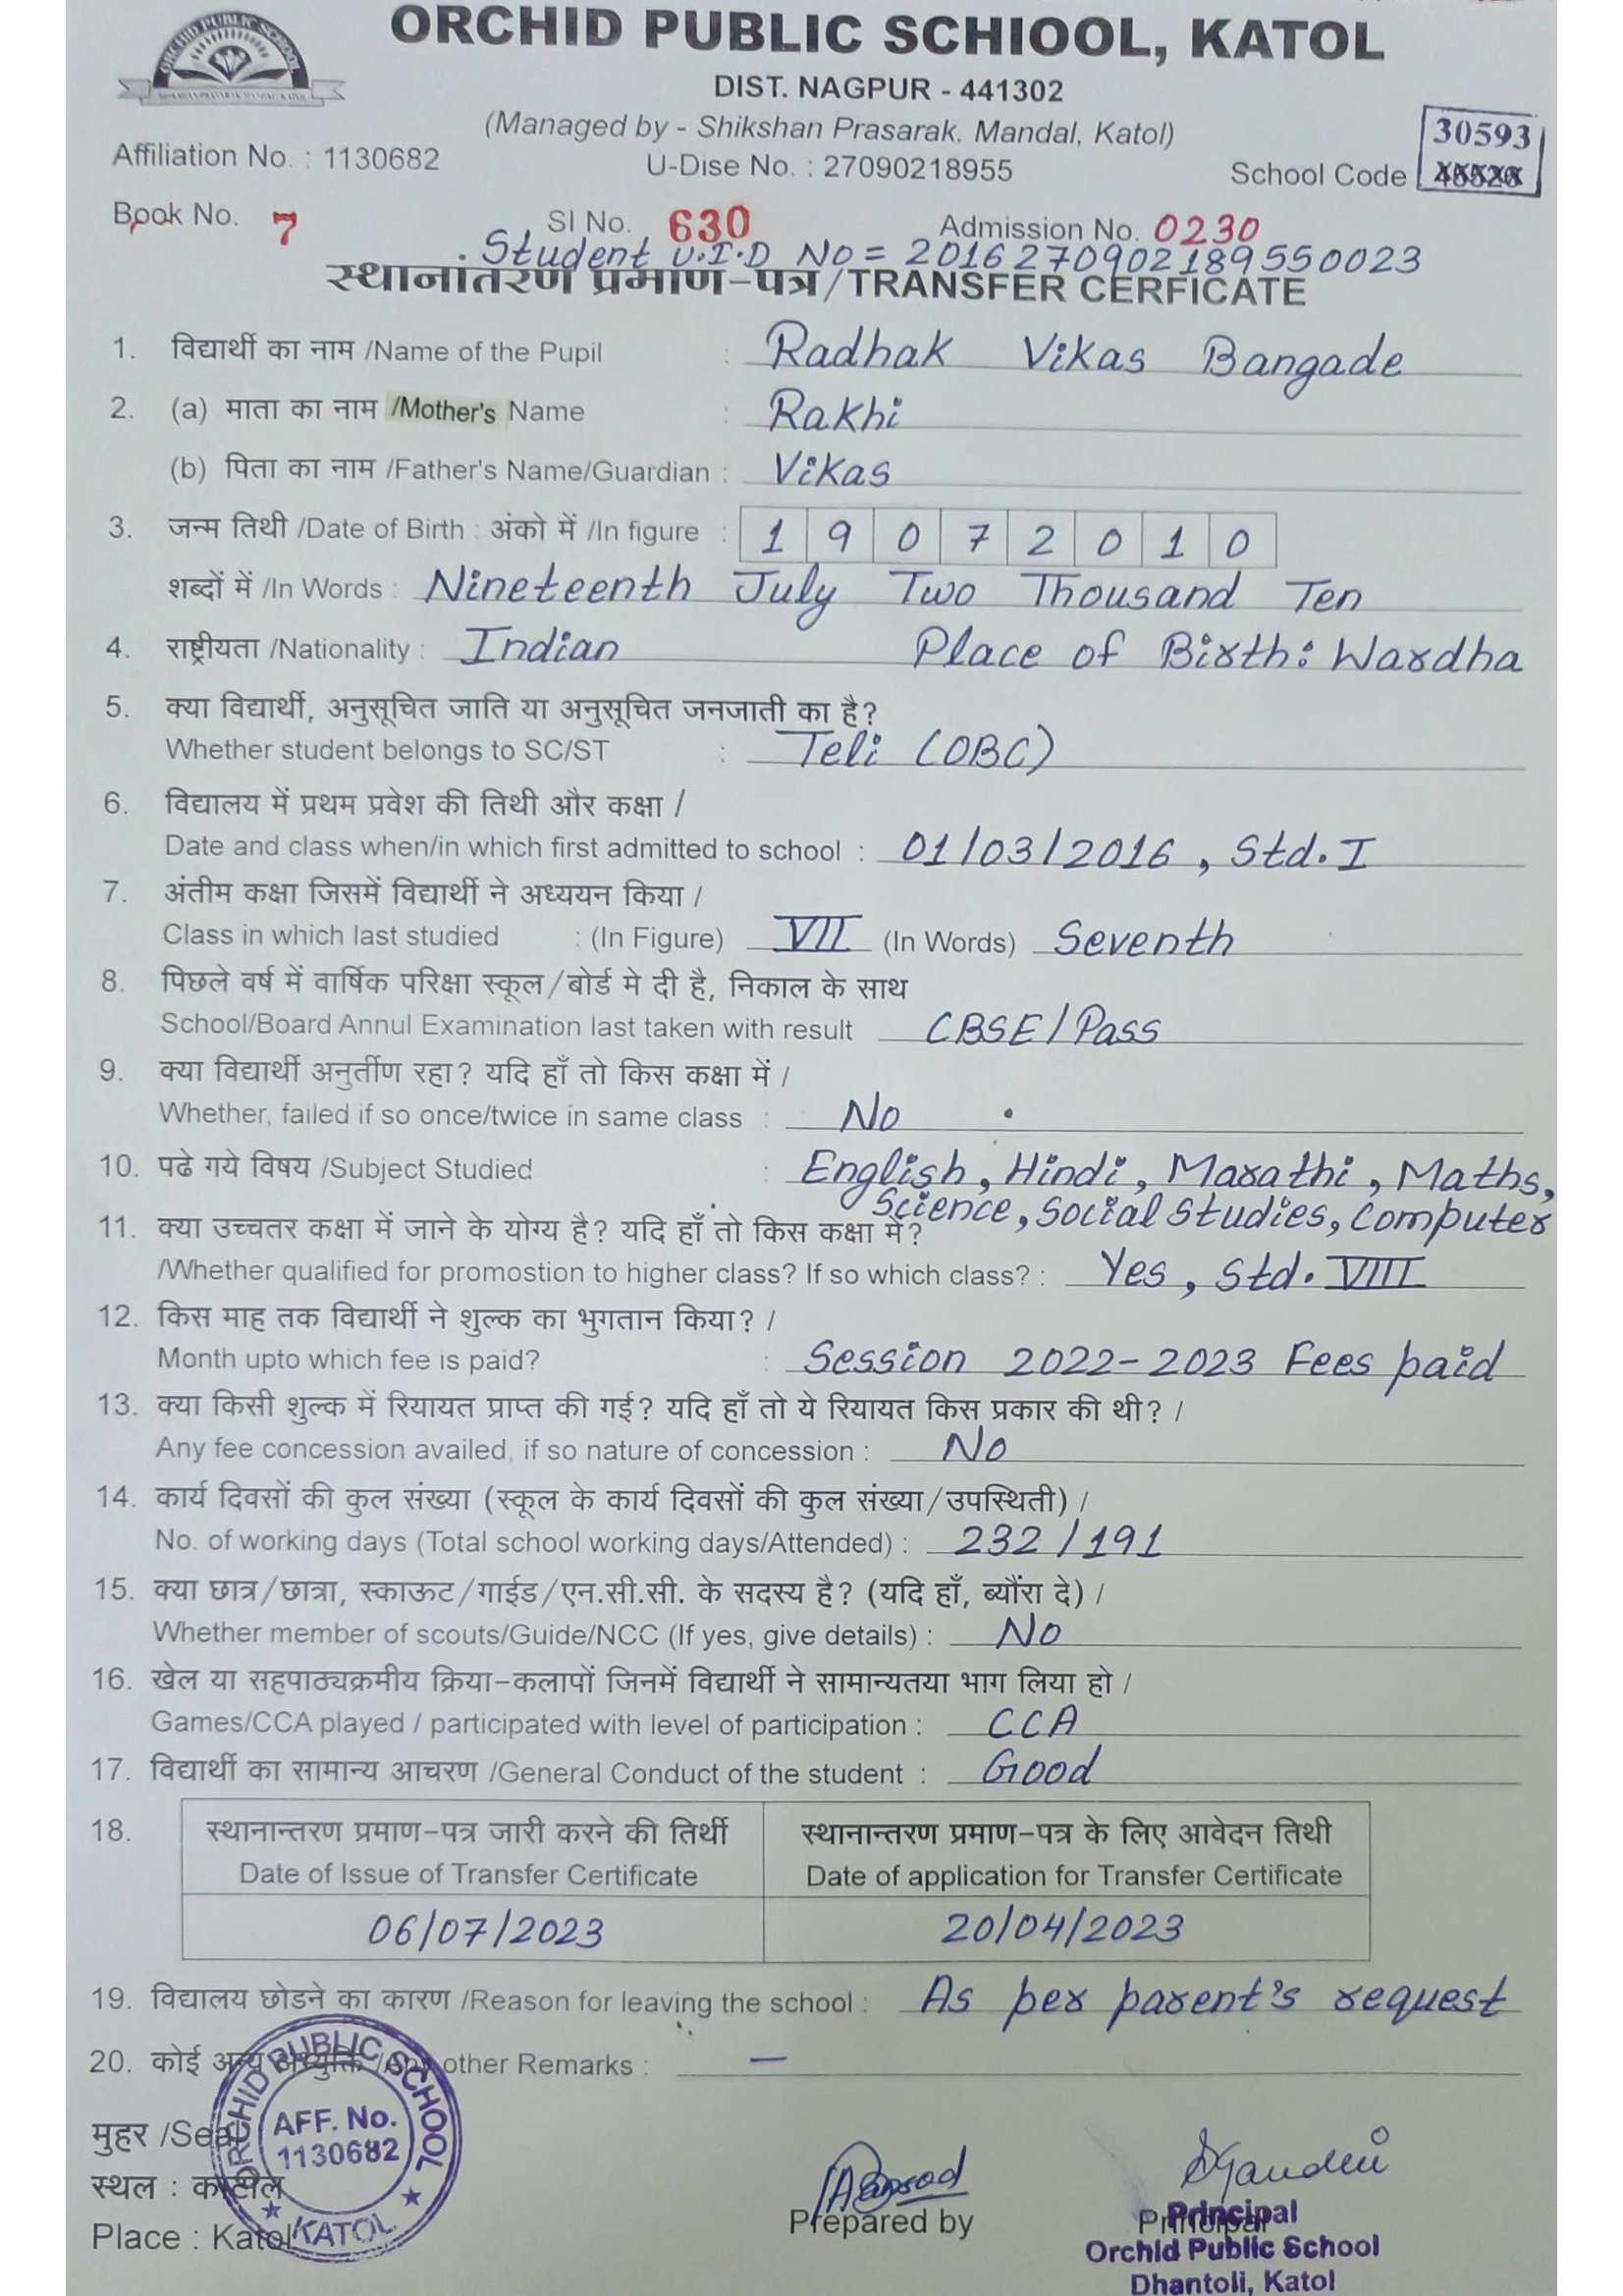 ORCHID PUBLIC SCHIOOL, KATOL
DIST. NAGPUR - 441302
(Managed by - Shikshan Prasarak. Mandal, Katol)
Affiliation No. : 1130682
U-Dise No. : 27090218955
School Code
30593
45526
Book No. 7
Sl No. 630
Admission No. 0230
Student U.I.D No = 2016270902189550023
स्थानांतरण प्रमाण-पत्र/TRANSFER CERFICATE
1. विद्यार्थी का नाम /Name of the Pupil : Radhak Vikas Bangade
2. (a) माता का नाम /Mother's Name : Rakhi
(b) पिता का नाम /Father's Name/Guardian : Vikas
3. जन्म तिथी /Date of Birth : अंको में /In figure : 1 9 0 7 2 0 1 0
शब्दों में /In Words : Nineteenth July Two Thousand Ten
4. राष्ट्रीयता /Nationality : Indian Place of Birth: Wardha
5. क्या विद्यार्थी, अनुसूचित जाति या अनुसूचित जनजाती का है?
Whether student belongs to SC/ST : Teli (OBC)
6. विद्यालय में प्रथम प्रवेश की तिथी और कक्षा /
Date and class when/in which first admitted to school : 01/03/2016, Std. I
7. अंतीम कक्षा जिसमें विद्यार्थी ने अध्ययन किया /
Class in which last studied : (In Figure) VII (In Words) Seventh
8. पिछले वर्ष में वार्षिक परिक्षा स्कूल/बोर्ड मे दी है, निकाल के साथ
School/Board Annul Examination last taken with result CBSE/Pass
9. क्या विद्यार्थी अनुर्तीण रहा? यदि हाँ तो किस कक्षा में /
Whether, failed if so once/twice in same class : No
10. पढे गये विषय /Subject Studied : English, Hindi, Marathi, Maths,
Science, Social Studies, Computer
11. क्या उच्चतर कक्षा में जाने के योग्य है? यदि हाँ तो किस कक्षा में?
/Whether qualified for promostion to higher class? If so which class? : Yes, Std. VIII
12. किस माह तक विद्यार्थी ने शुल्क का भुगतान किया? /
Month upto which fee is paid? : Session 2022-2023 Fees paid
13. क्या किसी शुल्क में रियायत प्राप्त की गई? यदि हाँ तो ये रियायत किस प्रकार की थी? /
Any fee concession availed, if so nature of concession : No
14. कार्य दिवसों की कुल संख्या (स्कूल के कार्य दिवसों की कुल संख्या/उपस्थिती) /
No. of working days (Total school working days/Attended) : 232/191
15. क्या छात्र/छात्रा, स्काऊट/गाईड/एन.सी.सी. के सदस्य है? (यदि हाँ, ब्यौंरा दे) /
Whether member of scouts/Guide/NCC (If yes, give details) : No
16. खेल या सहपाठ्यक्रमीय क्रिया-कलापों जिनमें विद्यार्थी ने सामान्यतया भाग लिया हो /
Games/CCA played / participated with level of participation : CCA
17. विद्यार्थी का सामान्य आचरण /General Conduct of the student : Good
18. स्थानान्तरण प्रमाण-पत्र जारी करने की तिर्थी
Date of Issue of Transfer Certificate
06/07/2023
स्थानान्तरण प्रमाण-पत्र के लिए आवेदन तिथी
Date of application for Transfer Certificate
20/04/2023
19. विद्यालय छोडने का कारण /Reason for leaving the school : As per parent's request
20. कोई अन्य अभ्युक्ति /Any other Remarks : —
मुहर /Seal
स्थल : काटोल
Place : Katol
ORCHID PUBLIC SCHOOL
AFF. No.
1130682
KATOL
Prepared by
Principal
Principal
Orchid Public School
Dhantoli, Katol